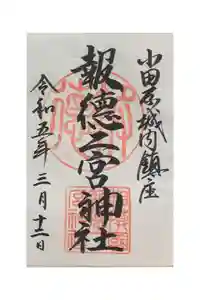 小田原城内鎮座
報徳二宮神社
令和五年三月十二日